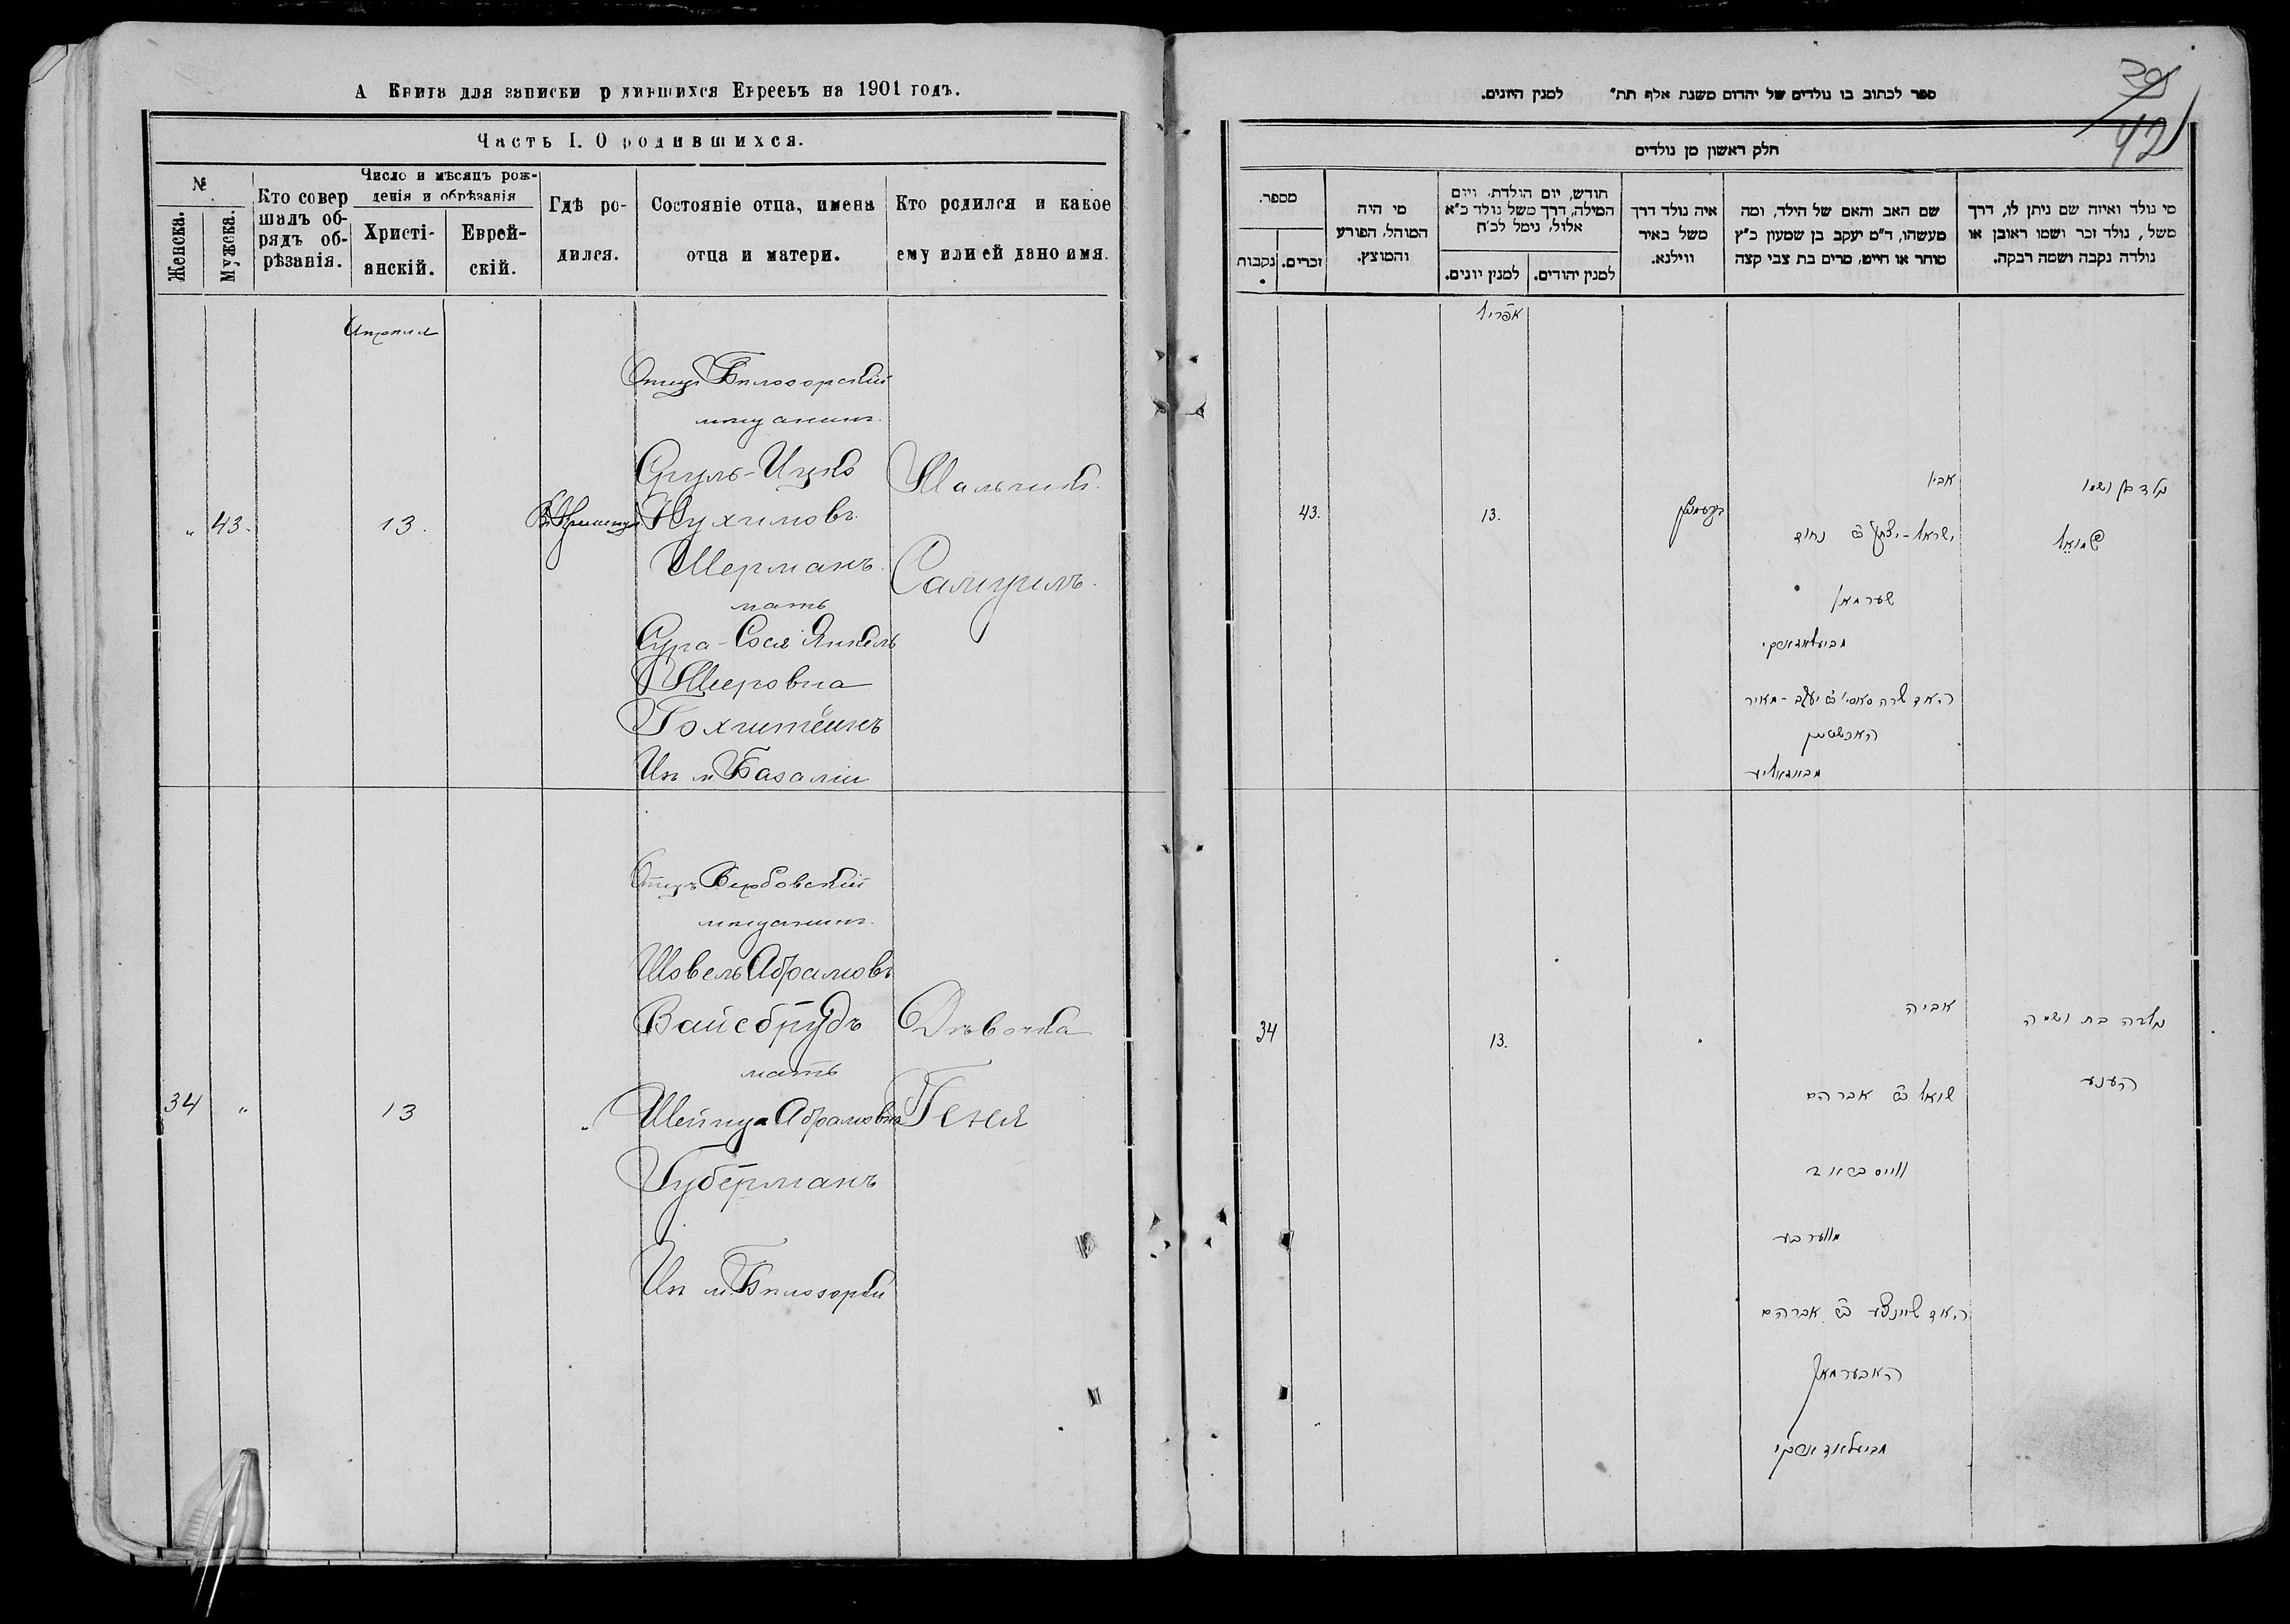 А Книга для записки р дившихся Евреевъ на 1901 годъ.
Часть I. О родившихся.
№
Женска.
Мужска.
Кто совер
шалъ об-
рядъ об-
рѣзанія.
Число и мѣсяцъ рож-
денія и обрѣзанія
Христі-
анскій.
Еврей-
скій.
Гдѣ ро-
дился.
Состояніе отца, имена
отца и матери.
Кто родился и какое
ему или ей дано имя.
Апрѣля
„ 43. 13.
Отецъ Бѣлозорскій
мѣщанинъ.
Сруль-Ицко
Нухимовъ
Шерманъ.
мать
Сура-Сося Янкель
Мееровна
Гохштейнъ
Изъ м Базаліи
Мальчикъ.
Самуилъ.
34 „ 13 „
Отецъ Вербовскій
мѣщанинъ.
Шовель Абрамовъ
Вайсбрудъ
мать
Абрамовна
Губерманъ
Изъ м. Бѣлозорки
Дѣвочка
Геня
ספר לכתוב בו נולדים של יהדום משנת אלף תת״ למנין היונים.
39
42
חלק ראשון מן נולדים
מספר.
זכרים.
נקבות
מי היה
המוהל, הפורע
והמוצץ.
חודש, יום הולדת, ויום
המילה, דרך משל נולד כ״א
אלול, נימל לכ״ח
למנין יונים.
למנין יהודים.
איה נולד דרך
משל באיר
ווילנא.
שם האב והאם של הילד, ומה
מעשהו, ד״מ יעקב בן שמעון כ״ץ
סוחר או חייט, מרים בת צבי קצה
מי נולד ואיזה שם ניתן לו, דרך
משל, נולד זכר ושמו ראובן או
נולדה נקבה ושמה רבקה.
אפריל
43. 13.
אביו
ישראל-יצחק ב״ר נחום
שערמאן
יעקב-מאיר
נולד בן ושמו
שמואל
34 13. „
אביה
אברהם
ווייסברוד
מווערבע
אברהם
האבערמאן
נולדה בת ושמה
הענע